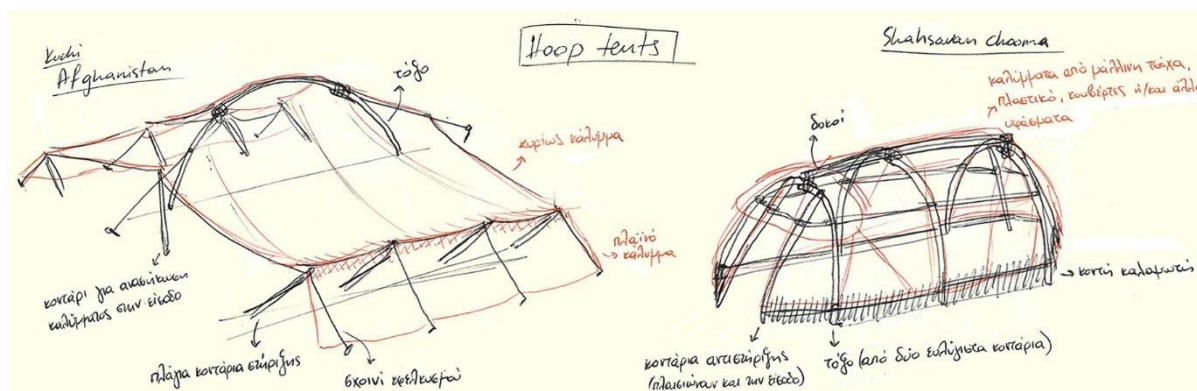 Kuchi
Afghanistan
Hoop tents
Shahsavan chooma
τόξο
κυρίως κάλυμμα
πλαϊνό
κάλυμμα
κοντάρι για ανασήκωση
καλύμματος στην είσοδο
πλάγια κοντάρια στήριξης
σχοινί εφελκυσμού
καλύμματα από μάλλινη τσόχα,
πλαστικό, κουβέρτες ή/και άλλα
υφάσματα
δοκοί
κοντή καλαμωτή
κοντάρια αντιστήριξης
(πλαισιώνουν και την είσοδο)
τόξο (από δύο ευλύγιστα κοντάρια)